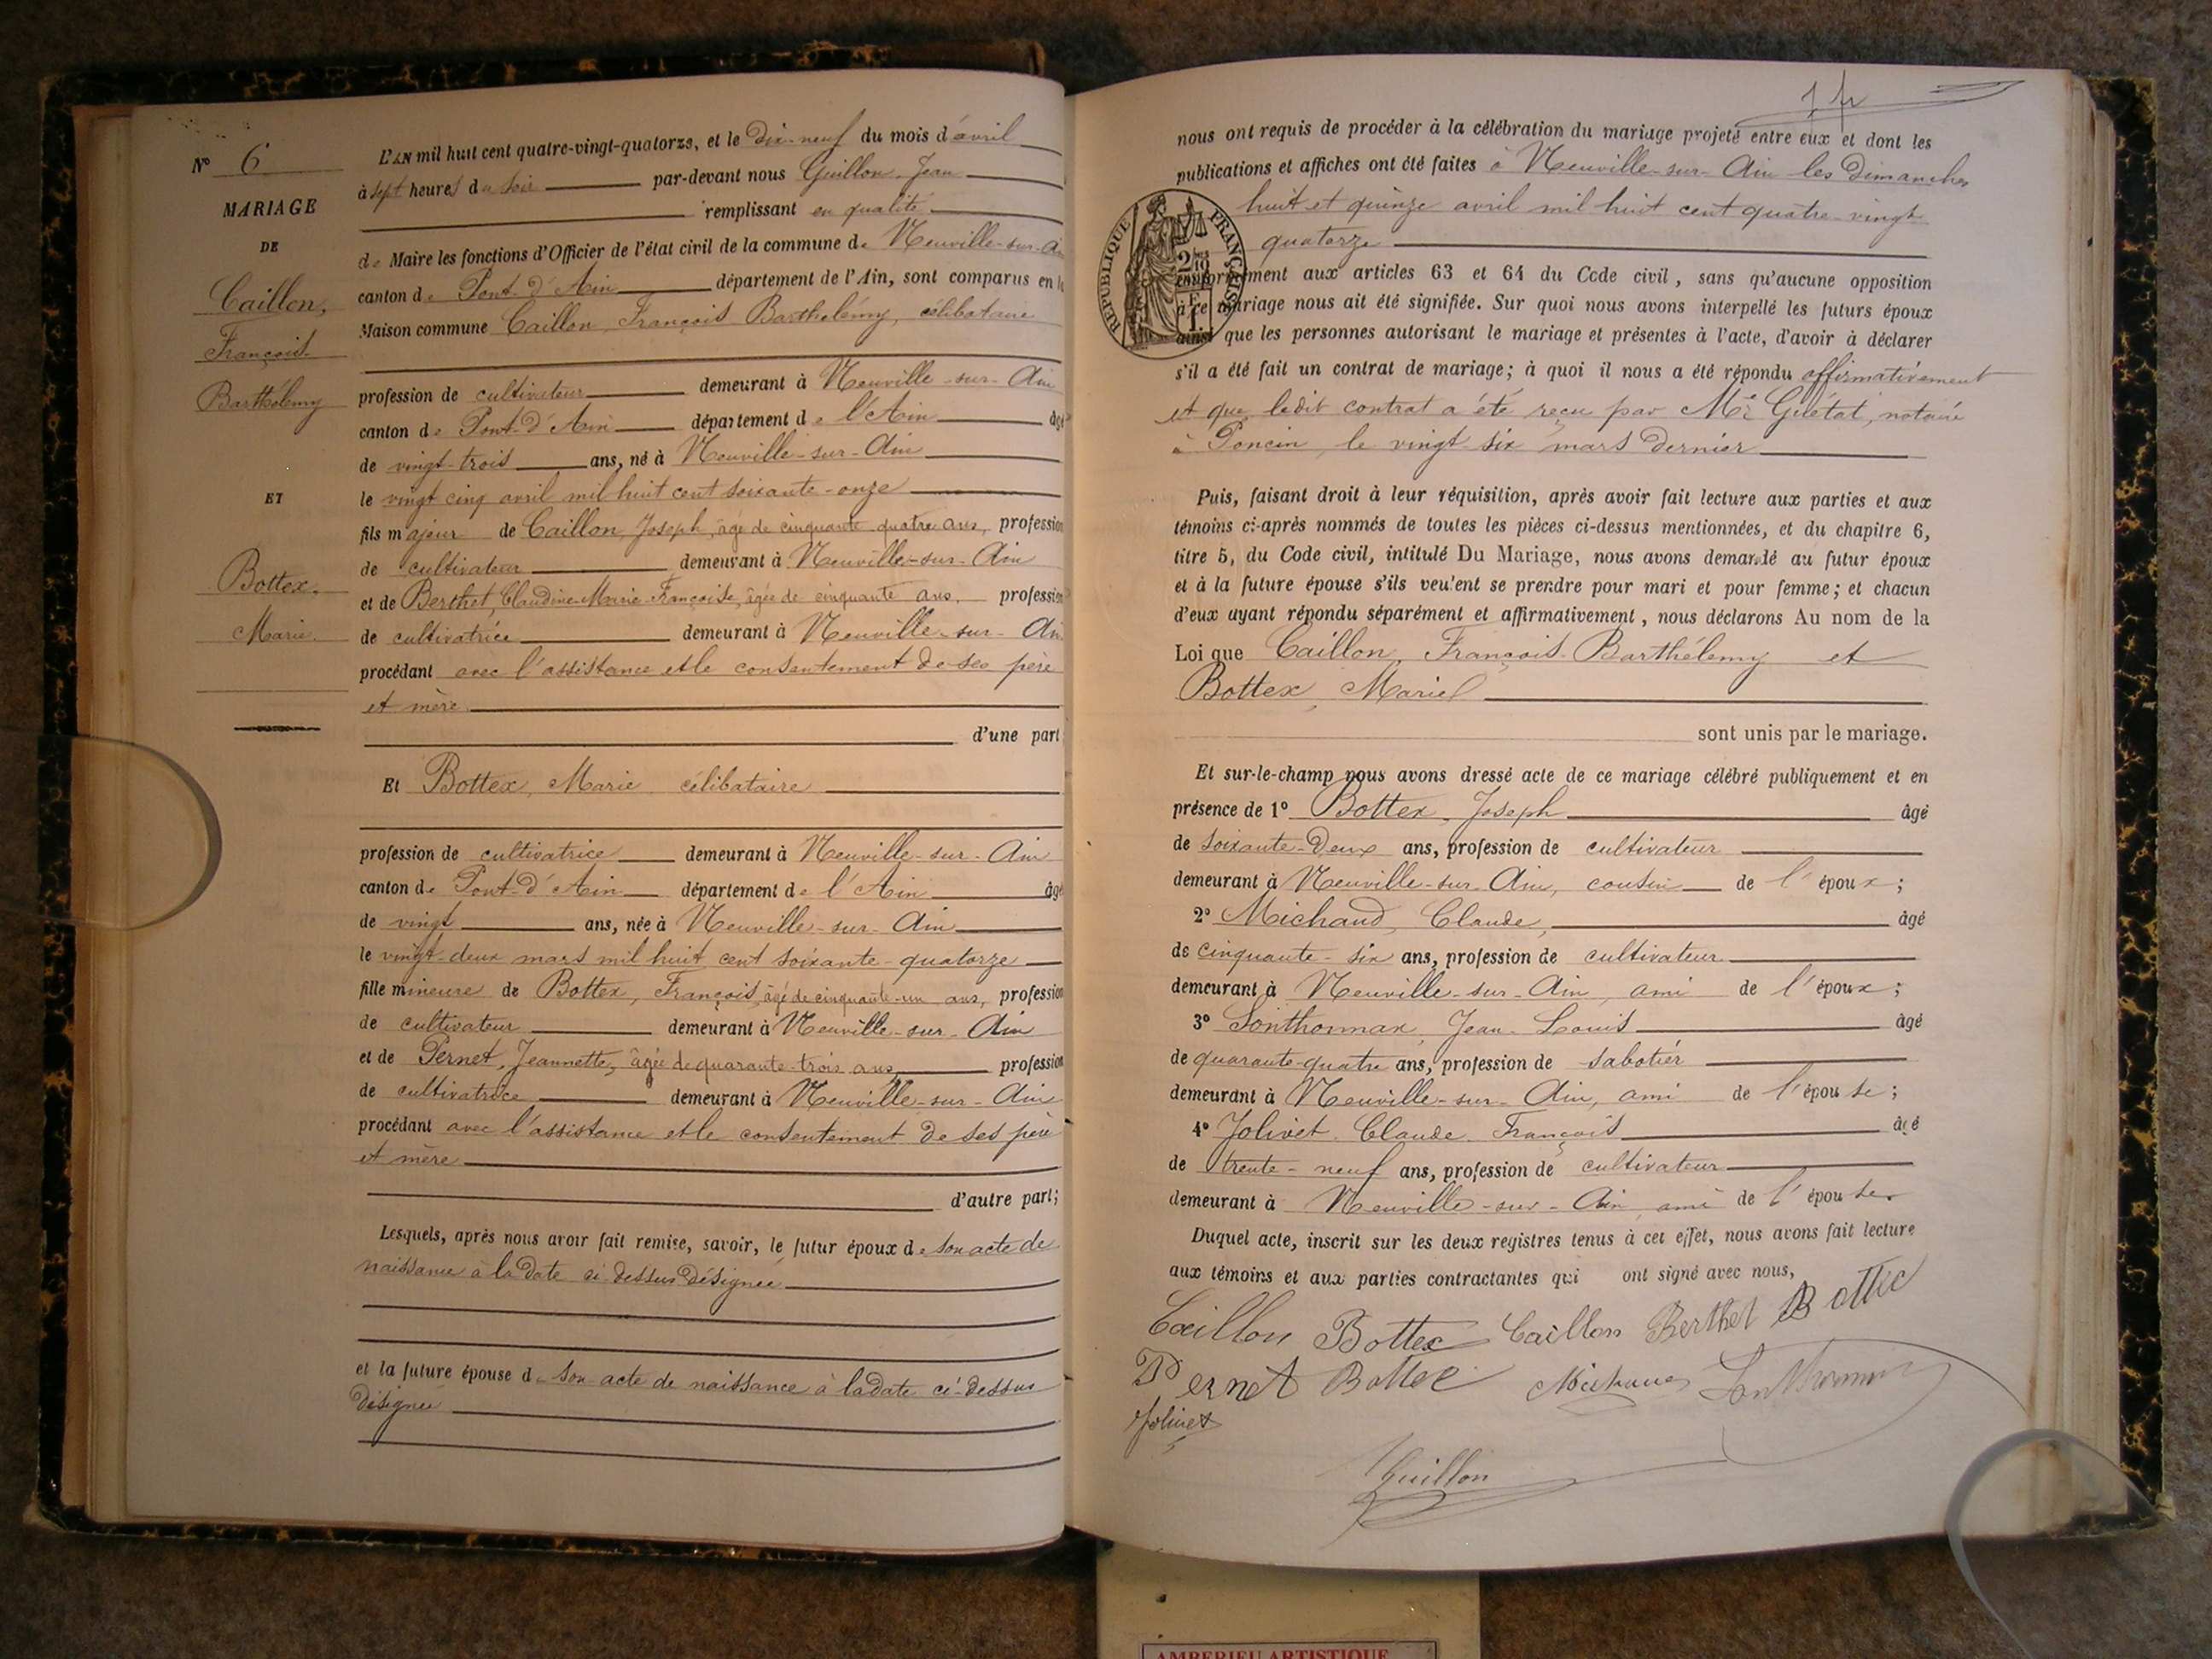 Nº 6
MARIAGE
DE
Caillon,
François-
Barthélemy
ET
Bottex,
Marie.
L'AN mil huit cent quatre-vingt-quatorze, et le dix-neuf du mois d'avril
à sept heures du soir par-devant nous Guillon Jean
remplissant en qualité
de Maire les fonctions d'Officier de l'état civil de la commune de Neuville-sur-A
canton de Pont-d'Ain département de l'Ain, sont comparus en l
Maison commune Caillon, François Barthélemy, célibataire
profession de cultivateur demeurant à Neuville-sur-Ain
canton de Pont-d'Ain département de l'Ain âgé
de vingt-trois ans, né à Neuville-sur-Ain
le vingt cinq avril mil huit cent soixante-onze
fils majeur de Caillon, Joseph, âgé de cinquante quatre ans, profession
de cultivateur demeurant à Neuville-sur-Ain
et de Berthet, Claudine-Marie-Françoise, âgée de cinquante ans, profession
de cultivatrice demeurant à Neuville-sur-Ain
procédant avec l'assistance et le consentement de ses père
et mère
d'une part
Et Bottex, Marie célibataire
profession de cultivatrice demeurant à Neuville-sur-Ain
canton de Pont-d'Ain département de l'Ain âgé
de vingt ans, née à Neuville-sur-Ain
le vingt-deux mars mil huit cent soixante-quatorze
fille mineure de Bottex, François, âgé de cinquante-un ans, profession
de cultivateur demeurant à Neuville-sur-Ain
et de Pernet, Jeannette, âgée de quarante-trois ans, profession
de cultivatrice demeurant à Neuville-sur-Ain
procédant avec l'assistance et le consentement de ses père
et mère
d'autre part;
Lesquels, après nous avoir fait remise, savoir, le futur époux de son acte de
naissance à la date ci-dessus désignée
et la future épouse de son acte de naissance à la date ci-dessus
désignée
nous ont requis de procéder à la célébration du mariage projeté entre eux et dont les
publications et affiches ont été faites à Neuville-sur-Ain les dimanches
huit et quinze avril mil huit cent quatre-vingt
quatorze
RÉPUBLIQUE FRANÇAISE
conformément aux articles 63 et 64 du Code civil, sans qu'aucune opposition
à ce mariage nous ait été signifiée. Sur quoi nous avons interpellé les futurs époux
ainsi que les personnes autorisant le mariage et présentes à l'acte, d'avoir à déclarer
s'il a été fait un contrat de mariage; à quoi il nous a été répondu affirmativement
et que ledit contrat a été reçu par Me Gélétat, notaire
à Poncin le vingt-six mars dernier
Puis, faisant droit à leur réquisition, après avoir fait lecture aux parties et aux
témoins ci-après nommés de toutes les pièces ci-dessus mentionnées, et du chapitre 6,
titre 5, du Code civil, intitulé Du Mariage, nous avons demandé au futur époux
et à la future épouse s'ils veulent se prendre pour mari et pour femme; et chacun
d'eux ayant répondu séparément et affirmativement, nous déclarons Au nom de la
Loi que Caillon, François-Barthélemy et
Bottex, Marie
sont unis par le mariage.
Et sur-le-champ nous avons dressé acte de ce mariage célébré publiquement et en
présence de 1º Bottex, Joseph âgé
de soixante-deux ans, profession de cultivateur
demeurant à Neuville-sur-Ain, cousin de l'époux;
2º Michaud, Claude, âgé
de cinquante-six ans, profession de cultivateur
demeurant à Neuville-sur-Ain, ami de l'époux;
3º Sonthonnax, Jean-Louis âgé
de quarante-quatre ans, profession de sabotier
demeurant à Neuville-sur-Ain, ami de l'épouse;
4º Jolivet, Claude François âgé
de trente-neuf ans, profession de cultivateur
demeurant à Neuville-sur-Ain ami de l'épouse.
Duquel acte, inscrit sur les deux registres tenus à cet effet, nous avons fait lecture
aux témoins et aux parties contractantes qui ont signé avec nous,
Caillon Bottex Caillon Berthet Bottex
Pernet Bottex Michaud Sonthonnax
Jolivet
Guillon
AMBERIEU ARTISTIQUE